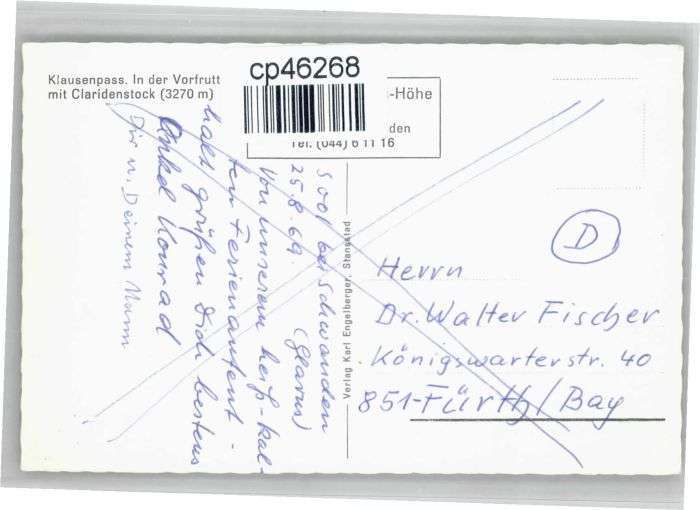 Klausenpass. In der Vorfrutt
mit Claridenstock (3270 m)
cp46268
-Höhe
den
Tel. (044) 6 11 16
Sool bei Schwanden
25.8.69 (Glarus)
Von unserem heiß-kal-
ten Ferienaufent-
halt grüßen Dich bestens
Onkel Konrad
Dir u. Deinem Mann
Verlag Karl Engelberger, Stansstad
D
Herrn
Dr. Walter Fischer
Königswarterstr. 40
851-Fürth/Bay